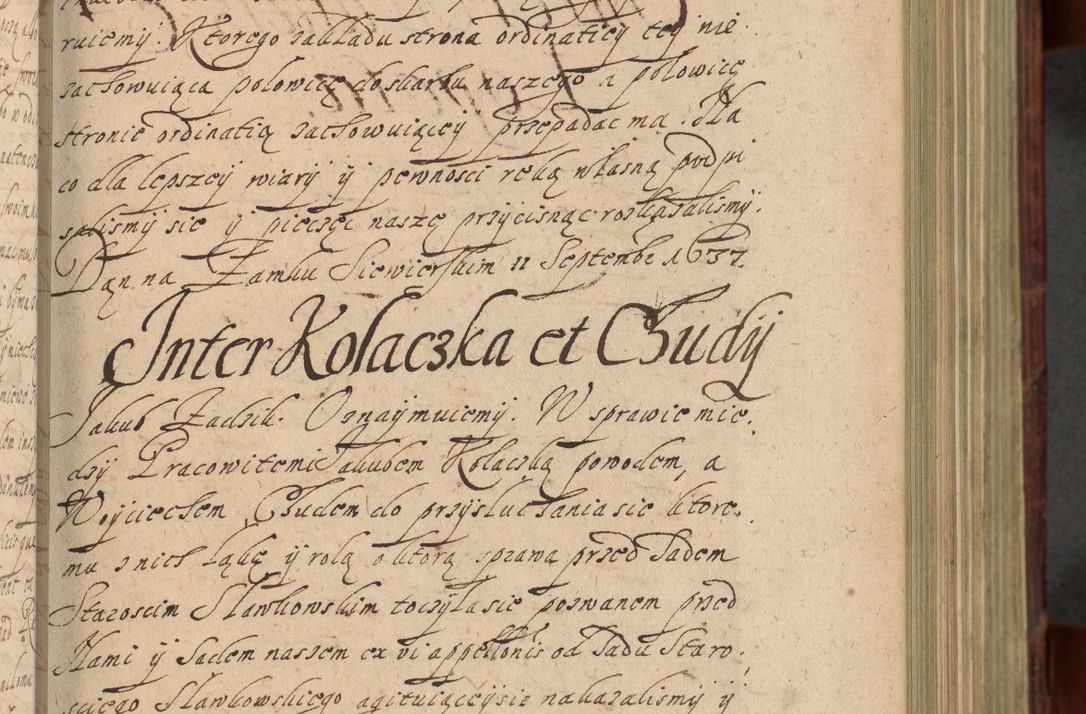 ruiemÿ. Ktorego zakładu strona ordinatiey teÿ nie
zachowuiąca połowicę do skarbu naszego a połowicę
stronie ordinatią zachowuiącej przepadac ma. Dla
co dla lepszeÿ wiarÿ ÿ pewnosci ręką własną podpi
salismÿ sie ÿ pieczęc naszę przÿcisnąc roskazalismÿ.
Dąn na Zamku Siewierskim 11 Septembr 1637.
Inter Kołaczka et Chudÿ
Jakub Zadzik. Oznaÿmuiemÿ. W sprawie mie.
dzÿ Pracowitemi Jakubem Kołaczką powodem, a
Woÿciechem Chudem do przÿsluchania sie ktore.
mu z nich łąkę ÿ rolą o ktorą sprawa przed Sadem
Staroscim Sławkowskim toczÿła sie pozwanem przed
Nami ÿ Sadem naszem ex vi appellonis od Sadu Staro.
sciego Sławkowskiego agituiąceÿ sie nakazalismÿ ÿ